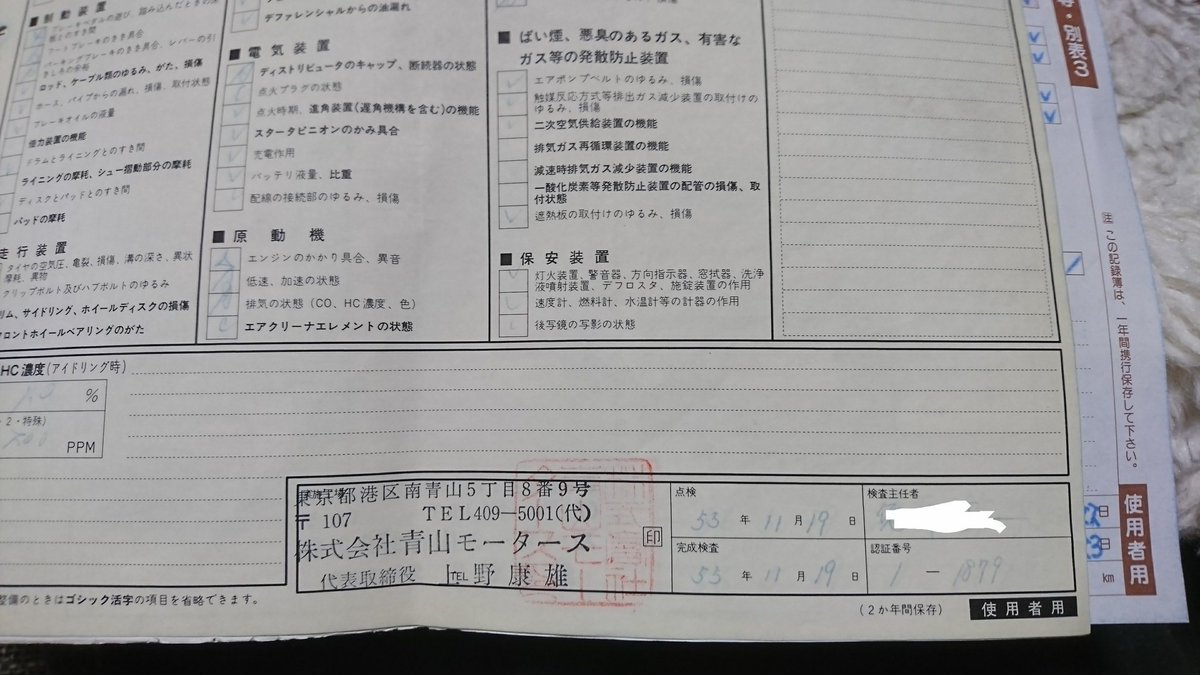 制動装置
ブレーキペダルの遊び、踏み込んだときの床
板とのすき間
フートブレーキのきき具合
パーキングブレーキのきき具合、レバーの引
きしろの余裕
ロッド、ケーブル類のゆるみ、がた、損傷
ホース、パイプからの漏れ、損傷、取付状態
ブレーキオイルの液量
倍力装置の機能
ドラムとライニングとのすき間
ライニングの摩耗、シュー摺動部分の摩耗
ディスクとパッドとのすき間
パッドの摩耗
走行装置
タイヤの空気圧、亀裂、損傷、溝の深さ、異状
摩耗、異物
クリップボルト及びハブボルトのゆるみ
リム、サイドリング、ホイールディスクの損傷
フロントホイールベアリングのがた
デファレンシャルからの油漏れ
■ 電気装置
ディストリビュータのキャップ、断続器の状態
点火プラグの状態
点火時期、進角装置(遅角機構を含む)の機能
スタータピニオンのかみ具合
充電作用
バッテリ液量、比重
配線の接続部のゆるみ、損傷
■ 原動機
エンジンのかかり具合、異音
低速、加速の状態
排気の状態(CO、HC濃度、色)
エアクリーナエレメントの状態
■ ばい煙、悪臭のあるガス、有害な
ガス等の発散防止装置
エアポンプベルトのゆるみ、損傷
触媒反応方式等排出ガス減少装置の取付けの
ゆるみ、損傷
二次空気供給装置の機能
排気ガス再循環装置の機能
減速時排気ガス減少装置の機能
一酸化炭素等発散防止装置の配管の損傷、取
付状態
遮熱板の取付けのゆるみ、損傷
■ 保安装置
灯火装置、警音器、方向指示器、窓拭器、洗浄
液噴射装置、デフロスタ、施錠装置の作用
速度計、燃料計、水温計等の計器の作用
後写鏡の写影の状態
HC濃度(アイドリング時)
%
2・特殊)
PPM
東京都港区南青山5丁目8番9号
〒107 TEL409-5001(代)
株式会社青山モータース
代表取締役 上野康雄
TEL
印
点検
53年11月19日
検査主任者
完成検査
53年11月19日
認証番号
1-1879
整備のときはゴシック活字の項目を省略できます。
(2か年間保存)
使用者用
等・別表3
注 この記録簿は、一年間携行保存して下さい。
日
日
km
使用者用